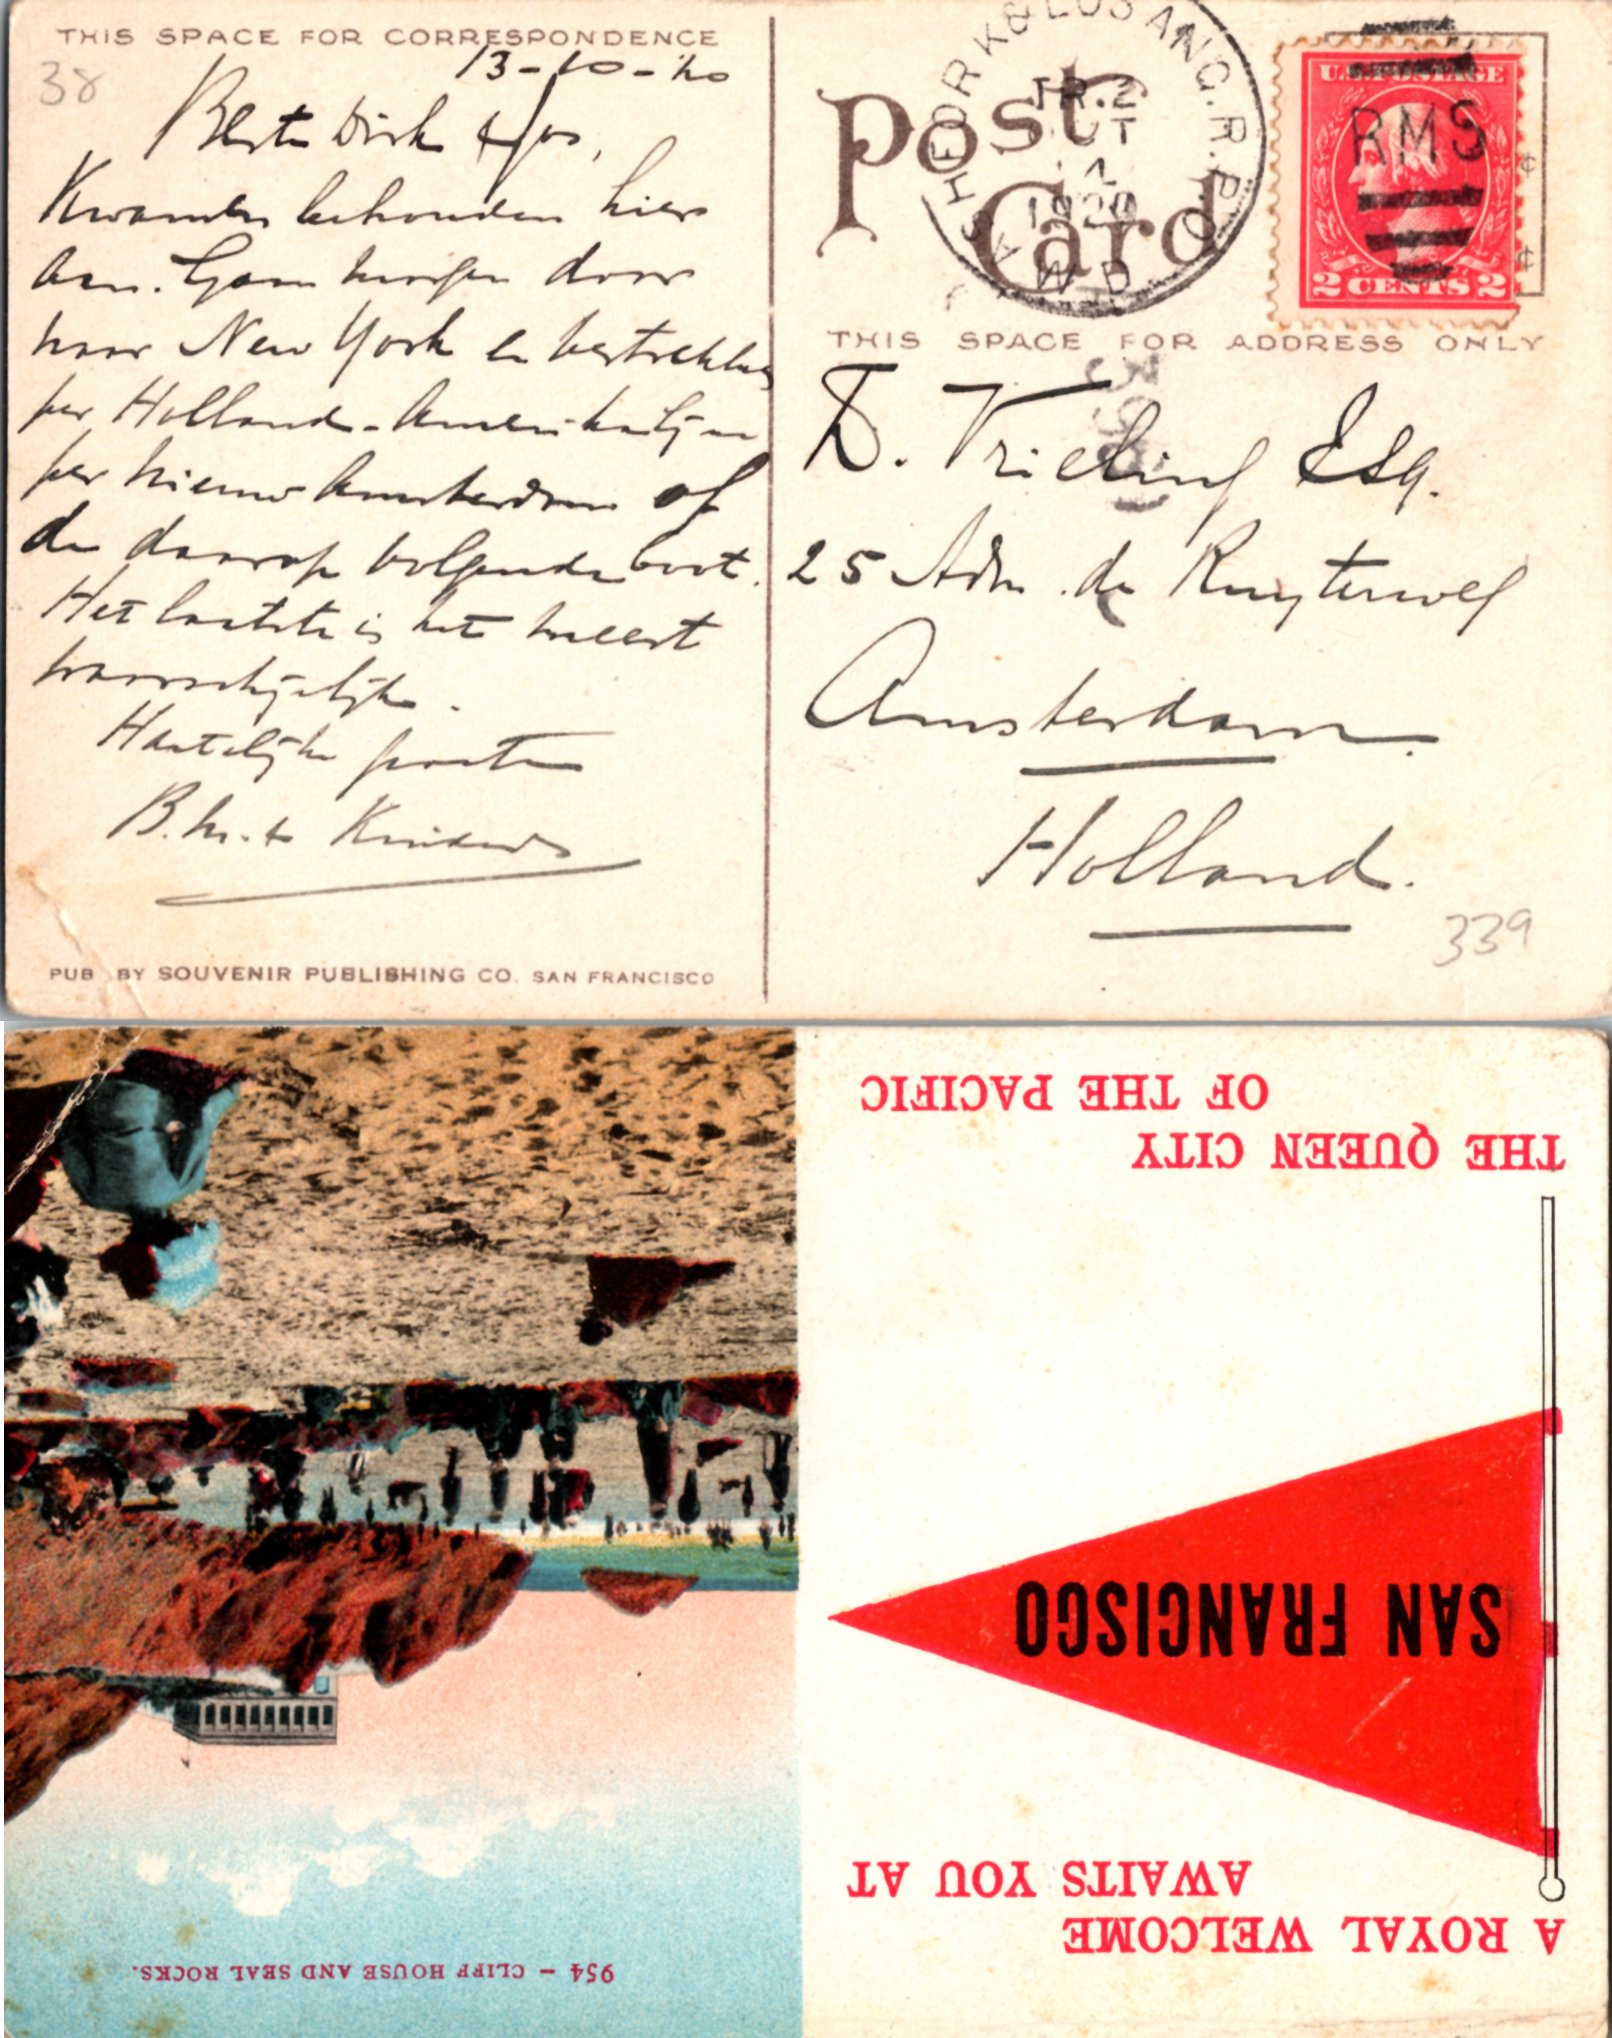 THIS SPACE FOR CORRESPONDENCE
38
13-10-'20
Beste Dirk & Jos,
Kwamen behouden hier
aan. Gaan morgen door
naar New York en vertrekken
per Holland-Amerika lijn
per Nieuw Amsterdam of
de daarop volgende boot.
Het laatste is het meest
waarschijnlijk.
Hartelijke groeten
PUB BY SOUVENIR PUBLISHING CO. SAN FRANCISCO
ASHFORK & LOS ANG. R.P.O.
TR.2
OCT
1920
W.D.
Post Card
U.S. POSTAGE
RMS
2 CENTS 2
THIS SPACE FOR ADDRESS ONLY
D. Vrieling Esq.
25 Adm. de Ruyterweg
Amsterdam.
Holland.
339
A ROYAL WELCOME
AWAITS YOU AT
SAN FRANCISCO
THE QUEEN CITY
OF THE PACIFIC
954 – CLIFF HOUSE AND SEAL ROCKS.